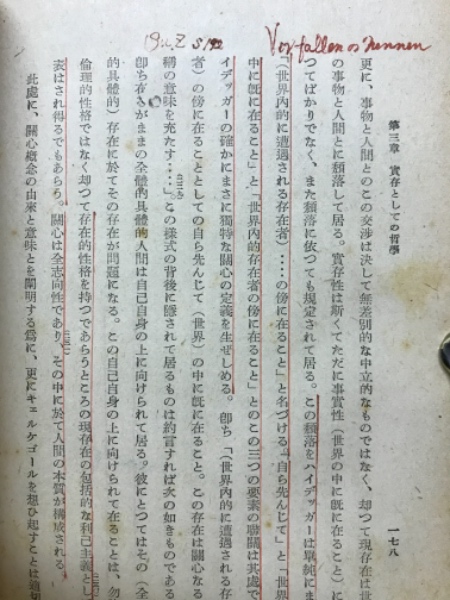 S.u.Z S 192
Verfallen
第三章　實存としての哲學
一七八
更に、事物と人間とのこの交渉は決して無差別的な中立的なものではなく、却つて現存在は世
の事物と人間とに頽落して居る。實存性は斯くてただに事實性（世界の中に既に在ること）に
つてばかりでなく、また頽落に依つても規定されて居る。この頽落をハイデッガーは單純にま
「（世界內的に遭遇される存在者）‥‥の傍に在ること」と名づける。「自ら先んじて」と「世界
中に既に在ること」と「世界內的存在者の傍に在ること」とのこの三つの要素の聯關は其處で
イデッガーの確かにまさに獨特な關心の定義を生ぜしめる。卽ち「（世界內的に遭遇される存
者）の傍に在ることとしての自ら先んじて（世界）の中に既に在ること。この存在は關心なる
稱の意味を充たす‥‥」。この樣式の背後に隱されて居るものは約言すれば次の如きものである
卽ち在るがままの全體的具體的人間は自己自身の上に向けられて居る。彼にとつてはその（全
的具體的）存在に於てその存在が問題になる。この自己自身の上に向けられて在ることは、勿
倫理的性格ではなく却つて存在的性格を持つであらうところの現存在の包括的な利己主義とし
表はされ得るでもあらう。關心は全志向性であり、その中に於て人間の本質が構成される
此處に、關心槪念の由來と意味とを闡明する爲に、更にキェルケゴールを想ひ起すことは適切